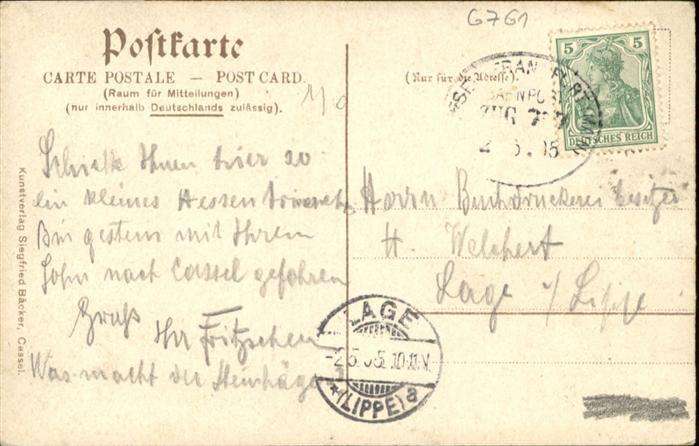 6761
Postkarte
CARTE POSTALE — POST CARD.
(Raum für Mitteilungen)
(nur innerhalb Deutschlands zulässig).
(Nur für die Adresse).
5 5
DEUTSCHES REICH
FRANKFURT
BAHNPOST
ZUG
Schicke Ihnen hier so
ein kleines Hessen
Bin gestern mit Ihrem
Sohn nach Cassel gefahren
Gruß
Ihr Fritzchen
Was macht der Steinhäger
Herrn Buchdruckerei besitzer
H. Welchert
Lage i/Lippe
LAGE
-2.5.05. 10-11.V.
*(LIPPE) a
Kunstverlag Siegfried Bäcker, Cassel.